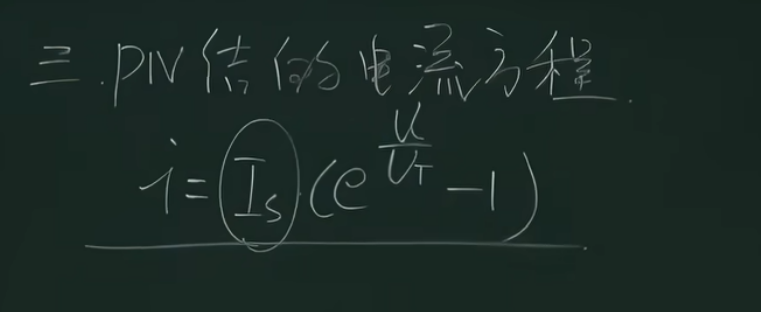 三.PN结的电流方程.
i=I_S(e^{\frac{u}{U_T}}-1)